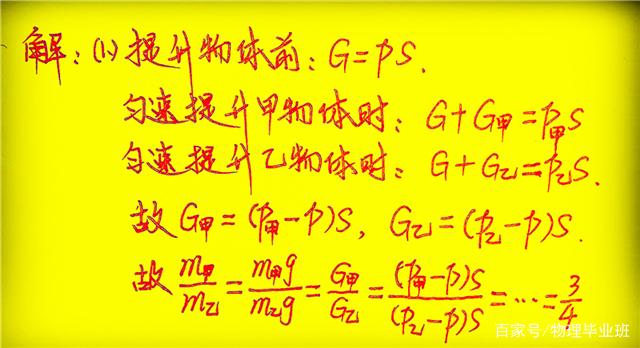 解：(1)提升物体前：G=pS.
匀速提升甲物体时：G+G甲=p甲S
匀速提升乙物体时：G+G乙=p乙S.
故G甲=(p甲-p)S，G乙=(p乙-p)S.
故m甲/m乙=m甲g/m乙g=G甲/G乙=(p甲-p)S/(p乙-p)S=…=3/4
百家号/物理毕业班